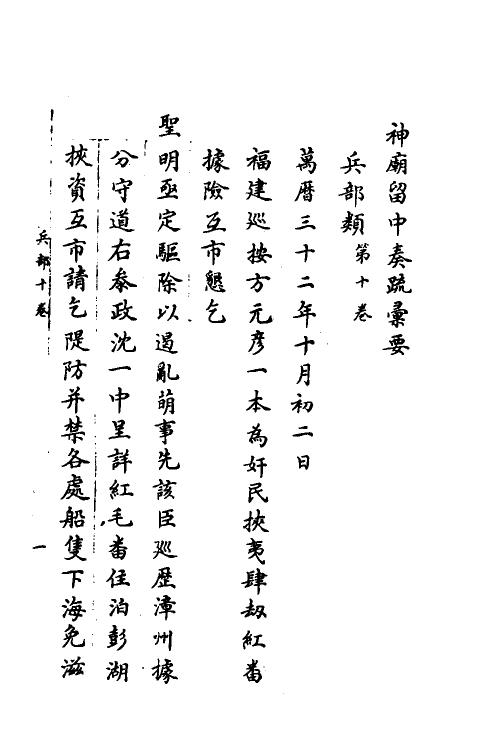 神廟留中奏疏彙要
兵部類第十卷
萬曆三十二年十月初二日
福建巡按方元彥一本為奸民挾夷肆劫紅番
據險互市懇乞
聖明亟定驅除以遏亂萌事先該臣巡歷漳州據
分守道右叅政沈一中呈詳紅毛番住泊彭湖
挾資互市請乞隄防并禁各處船隻下海免滋
兵部十卷
一